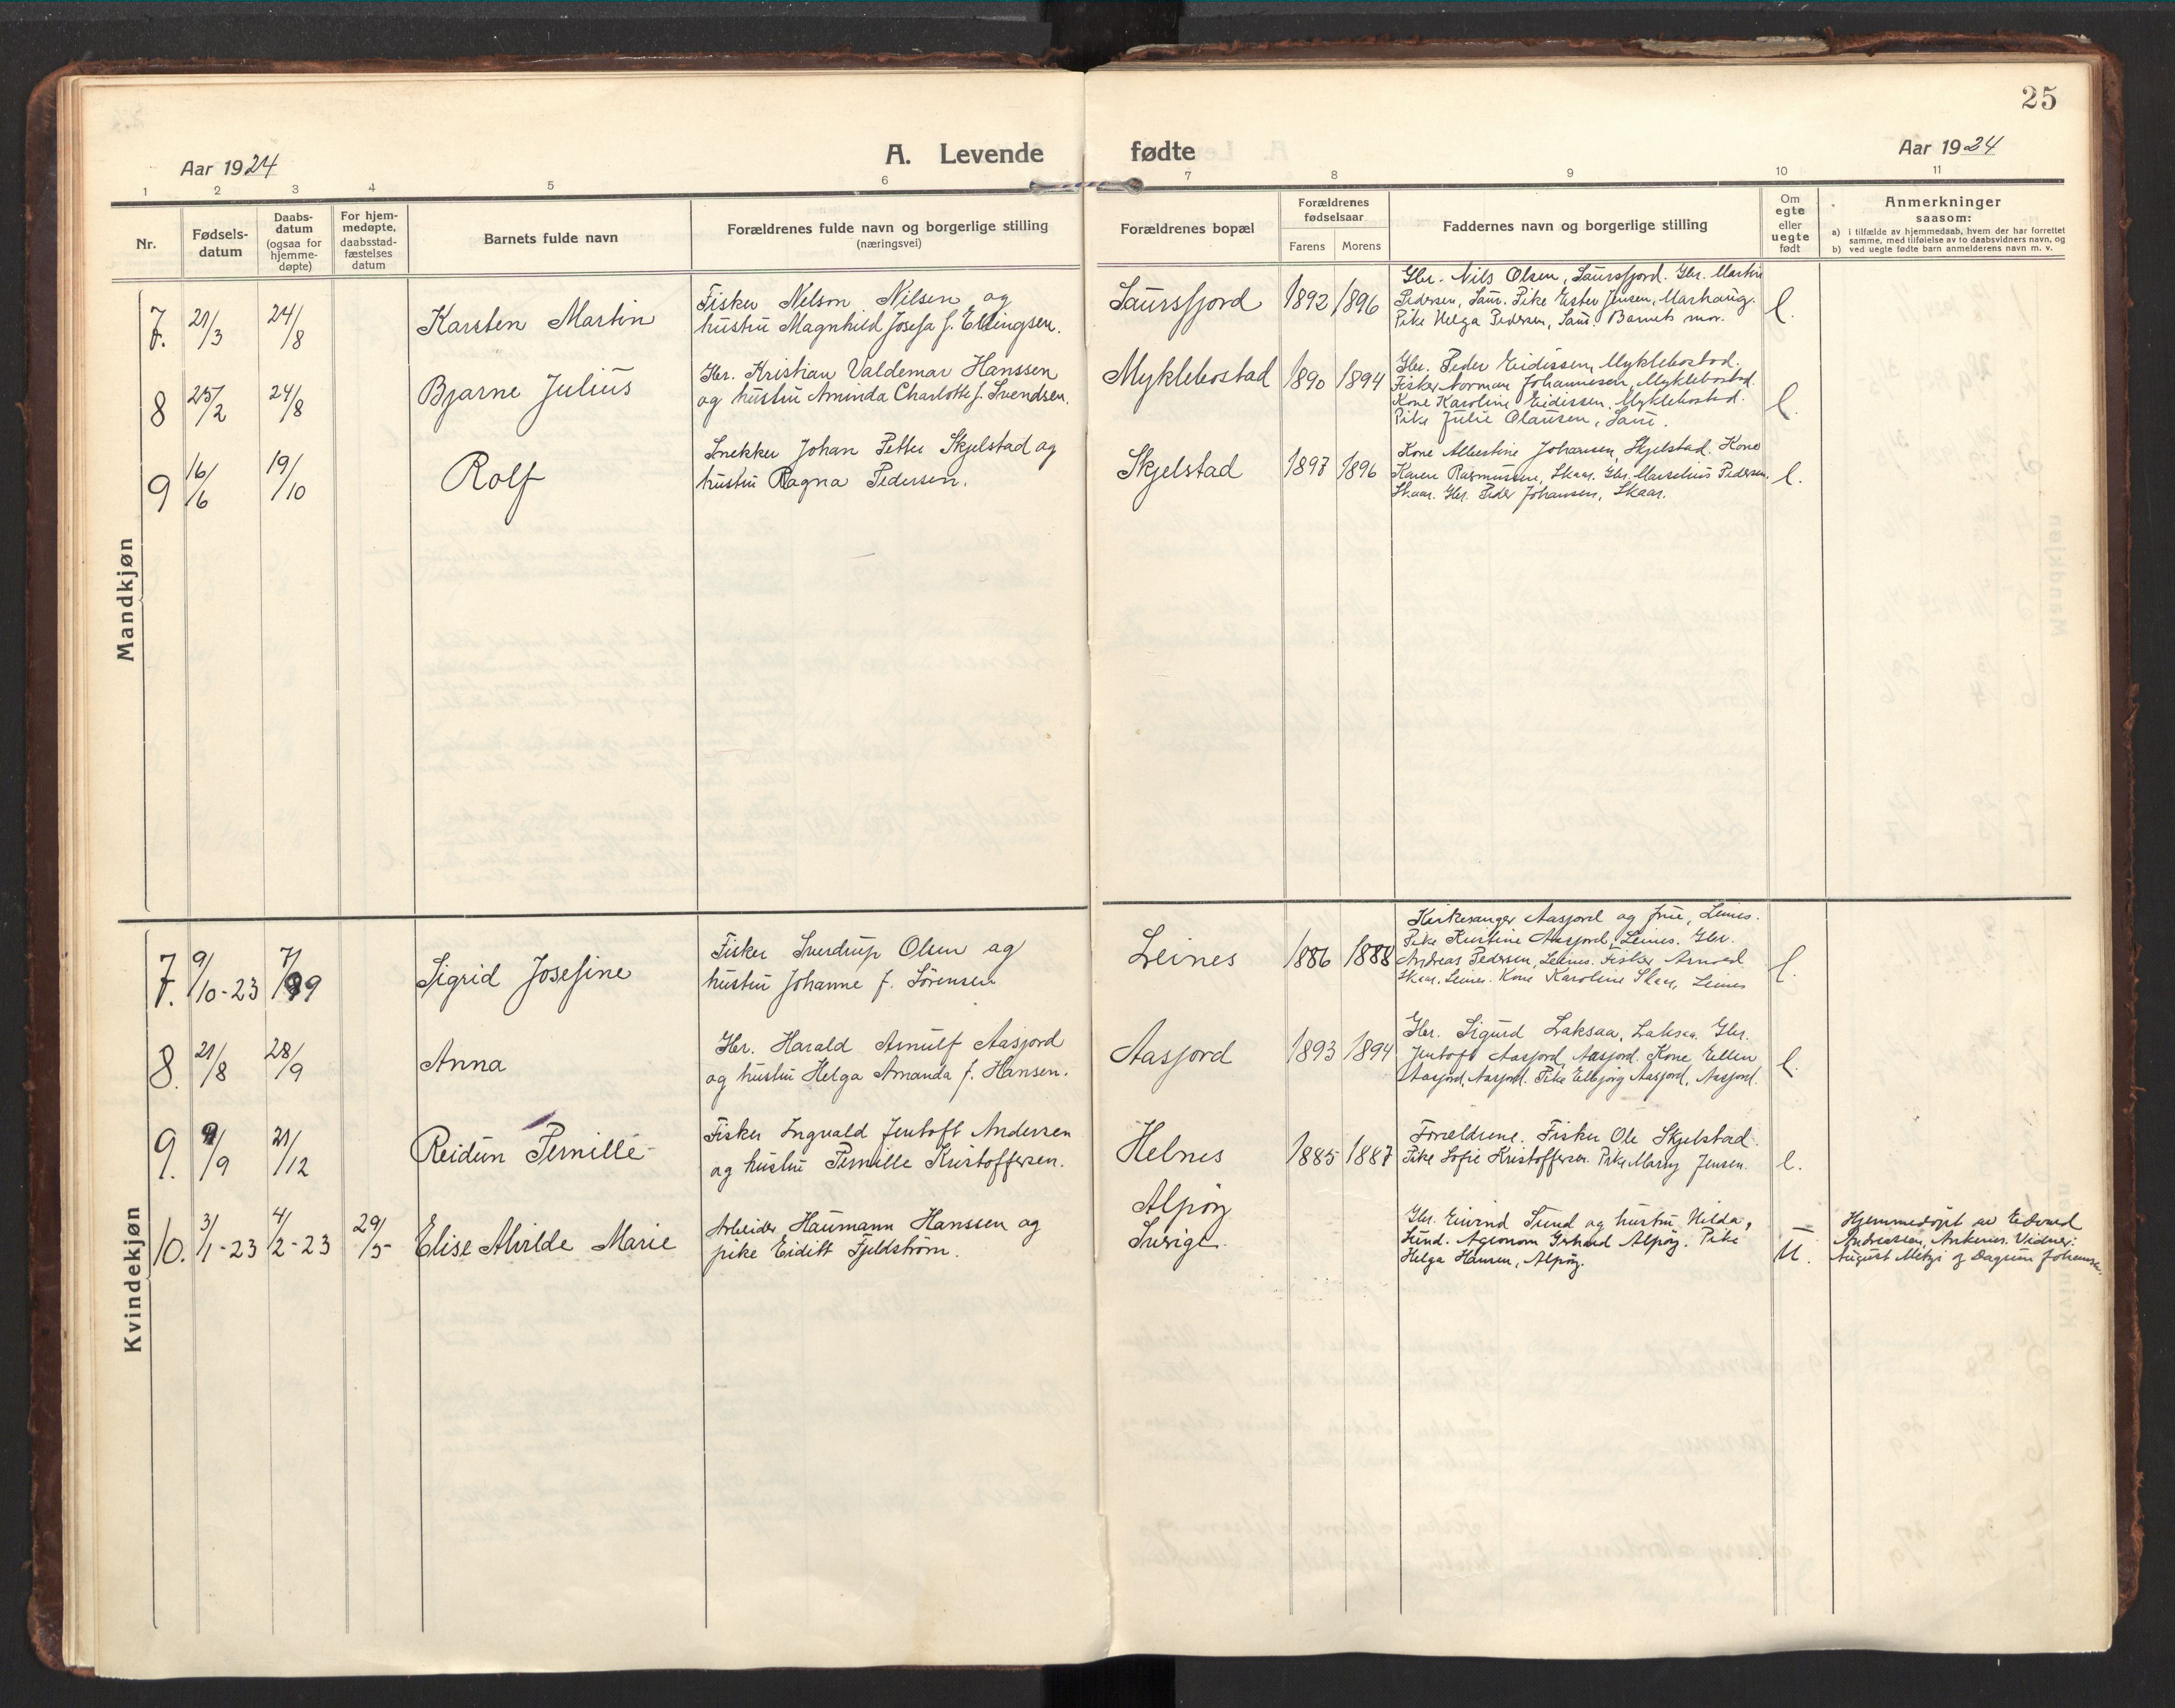 25
Aar 1924
A. Levende fødte
Aar 1924
1 2 3 4 5 6 7 8 9 10 11
Nr.
Fødsels-
datum
Daabs-
datum
(ogsaa for
hjemme-
døpte)
For hjem-
medøpte,
daabsstad-
fæstelses
datum
Barnets fulde navn
Forældrenes fulde navn og borgerlige stilling
(næringsvei)
Forældrenes bopæl
Forældrenes
fødselsaar
Farens Morens
Faddernes navn og borgerlige stilling
Om
egte
eller
uegte
født
Anmerkninger
saasom:
a) i tilfælde av hjemmedaab, hvem der har forrettet
samme, med tilføielse av to daabsvidners navn, og
b) ved uegte fødte barn anmelderens navn m. v.
Mandkjøn
7. 21/3 24/8 Karsten Martin
Fisker Nelson Nilsen og
hustru Magnhild Josefa f. Ellingsen.
Saursfjord 1892 1896
Gbr. Nils Olsen, Saursfjord. Gbr. Martin
Pedersen, Saur. Pike Ester Jensen, Marhaug.
Pike Helga Pedersen, Saur. Barnets mor.
e.
8 25/2 24/8 Bjarne Julius
Gbr. Kristian Valdemar Hanssen
og hustru Aminda Charlotte f. Svendsen.
Myklebostad 1890 1894
Gbr. Peder Eidissen, Myklebostad.
Fisker Norman Johannesen, Myklebostad.
Kone Karoline Eidissen, Myklebostad.
Pike Julie Olausen, Saur.
e.
9 16/6 19/10 Rolf
Snekker Johan Petter Skjelstad og
hustru Ragna Pedersen.
Skjelstad 1897 1896
Kone Albertine Johansen, Skjelstad. Kone
Karen Rasmussen, Skaar. Gbr. Marselius Pedersen,
Skaar. Gbr. Peder Johansen, Skaar.
e.
Kvindekjøn
7. 9/10-23 7/9 Sigrid Josefine
Fisker Sverdrup Olsen og
hustru Johanne f. Sørensen
Leines 1886 1888
Kirkesanger Aasjord og frue, Leines.
Pike Kristine Aasjord, Leines. Gbr.
Andreas Pedersen, Leines. Fisker Arnold
Skaar, Leines. Kone Karoline Skaar, Leines
e.
8. 21/8 28/9 Anna
Gbr. Harald Arnulf Aasjord
og hustru Helga Amanda f. Hansen.
Aasjord 1893 1894
Gbr. Sigurd Laksaa, Laksaa. Gbr.
Jentoft Aasjord, Aasjord. Kone Ellen
Aasjord, Aasjord. Pike Elbjørg Aasjord, Aasjord.
e.
9. 9/9 21/12 Reidun Pernille
Fisker Ingvald Jentoft Andersen
og hustru Pernille Kristoffersen.
Helnes 1885 1887
Forældrene. Fisker Ole Skjelstad.
Pike Sofie Kristoffersen. Pike Marry Jensen.
e.
10. 3/1-23 4/2-23 29/5 Elise Alvilde Marie
Arbeider Haumann Hanssen og
pike Eiditt Fjeldstrøm.
Alpøy
Sverige.
Gbr. Eivind Sund og hustru Hilda,
Sund. Agronom Gerhard Alpøy. Pike
Helga Hansen, Alpøy.
u.
Hjemmedøpt av Edvard
Andreassen, Ankenes. Vidner:
August og Dagrun Johansen.